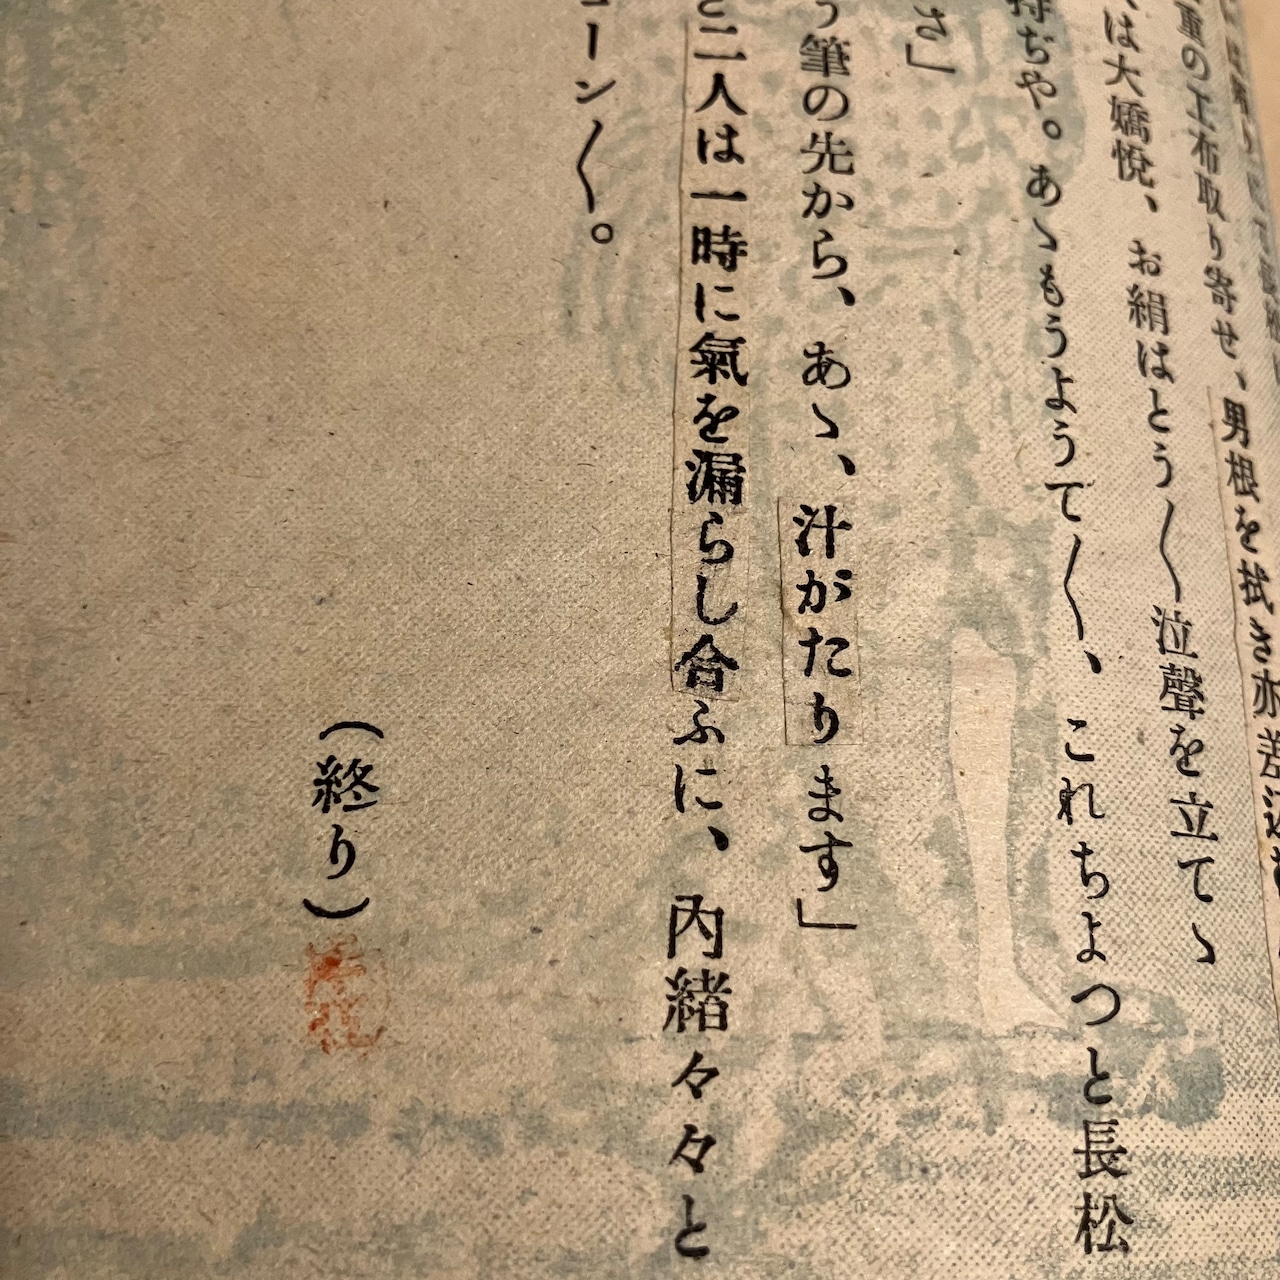 重の工布取り寄せ、男根を拭き亦差込む
は大嬌悅、お絹はとう〱泣聲を立てゝ
持ぢや。あゝもうようて〱、これちよつと長松
さ」
筆の先から、あゝ、汁がたります」
と二人は一時に氣を漏らし合ふに、内緒々々と
コーン〱。
(終り)